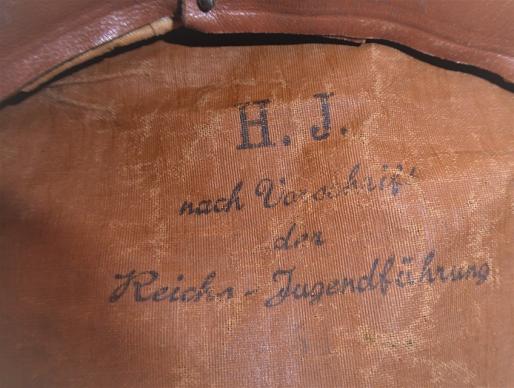 H. J.
nach Vorschrift
der
Reichs - Jugendführung